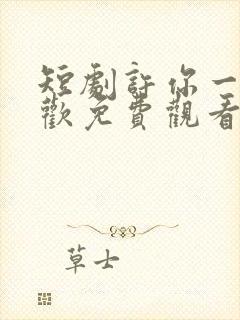 短劇許你一
歡免費觀看
草士